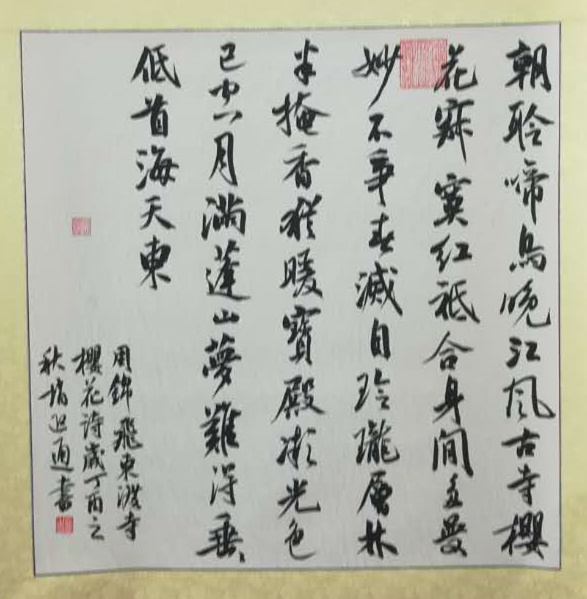 朝聆啼鳥晚江風古寺櫻
花寂寞紅祗合身閒曼
妙不爭春減自玲瓏層林
半掩香猶暖寶殿凝光色
已空月滿蓬山夢難得垂々
低首海天東
周錦飛東渡寺
櫻花詩歲丁酉之
秋書